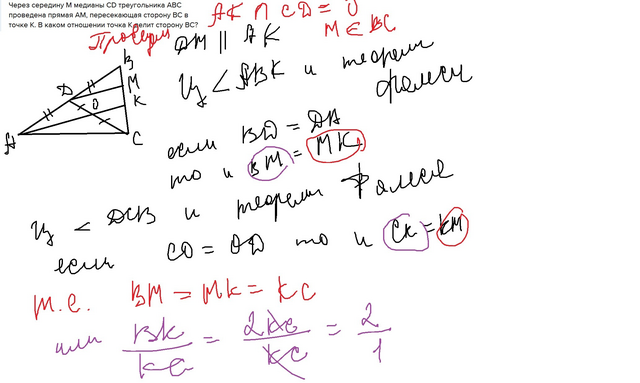 Через середину M медианы CD треугольника ABC
проведена прямая AM, пересекающая сторону BC в
точке K. В каком отношении точка K делит сторону BC?
AK ∩ CD = O
M ∈ BC
Проведем DM || AK
B
M
K
D
O
A
C
Из < ABK и теореми
фалеси
если BD = DA
то и BM = MK
Из < DCB и теореми Фалесе
если CO = OD то и CK = KM
т.е. BM = MK = KC
или BK/KC = 2KC/KC = 2/1